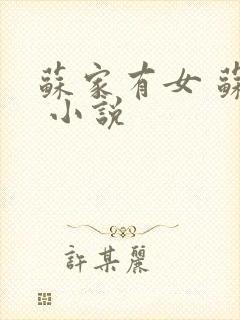 蘇家有女 蘇
小說
許某麗